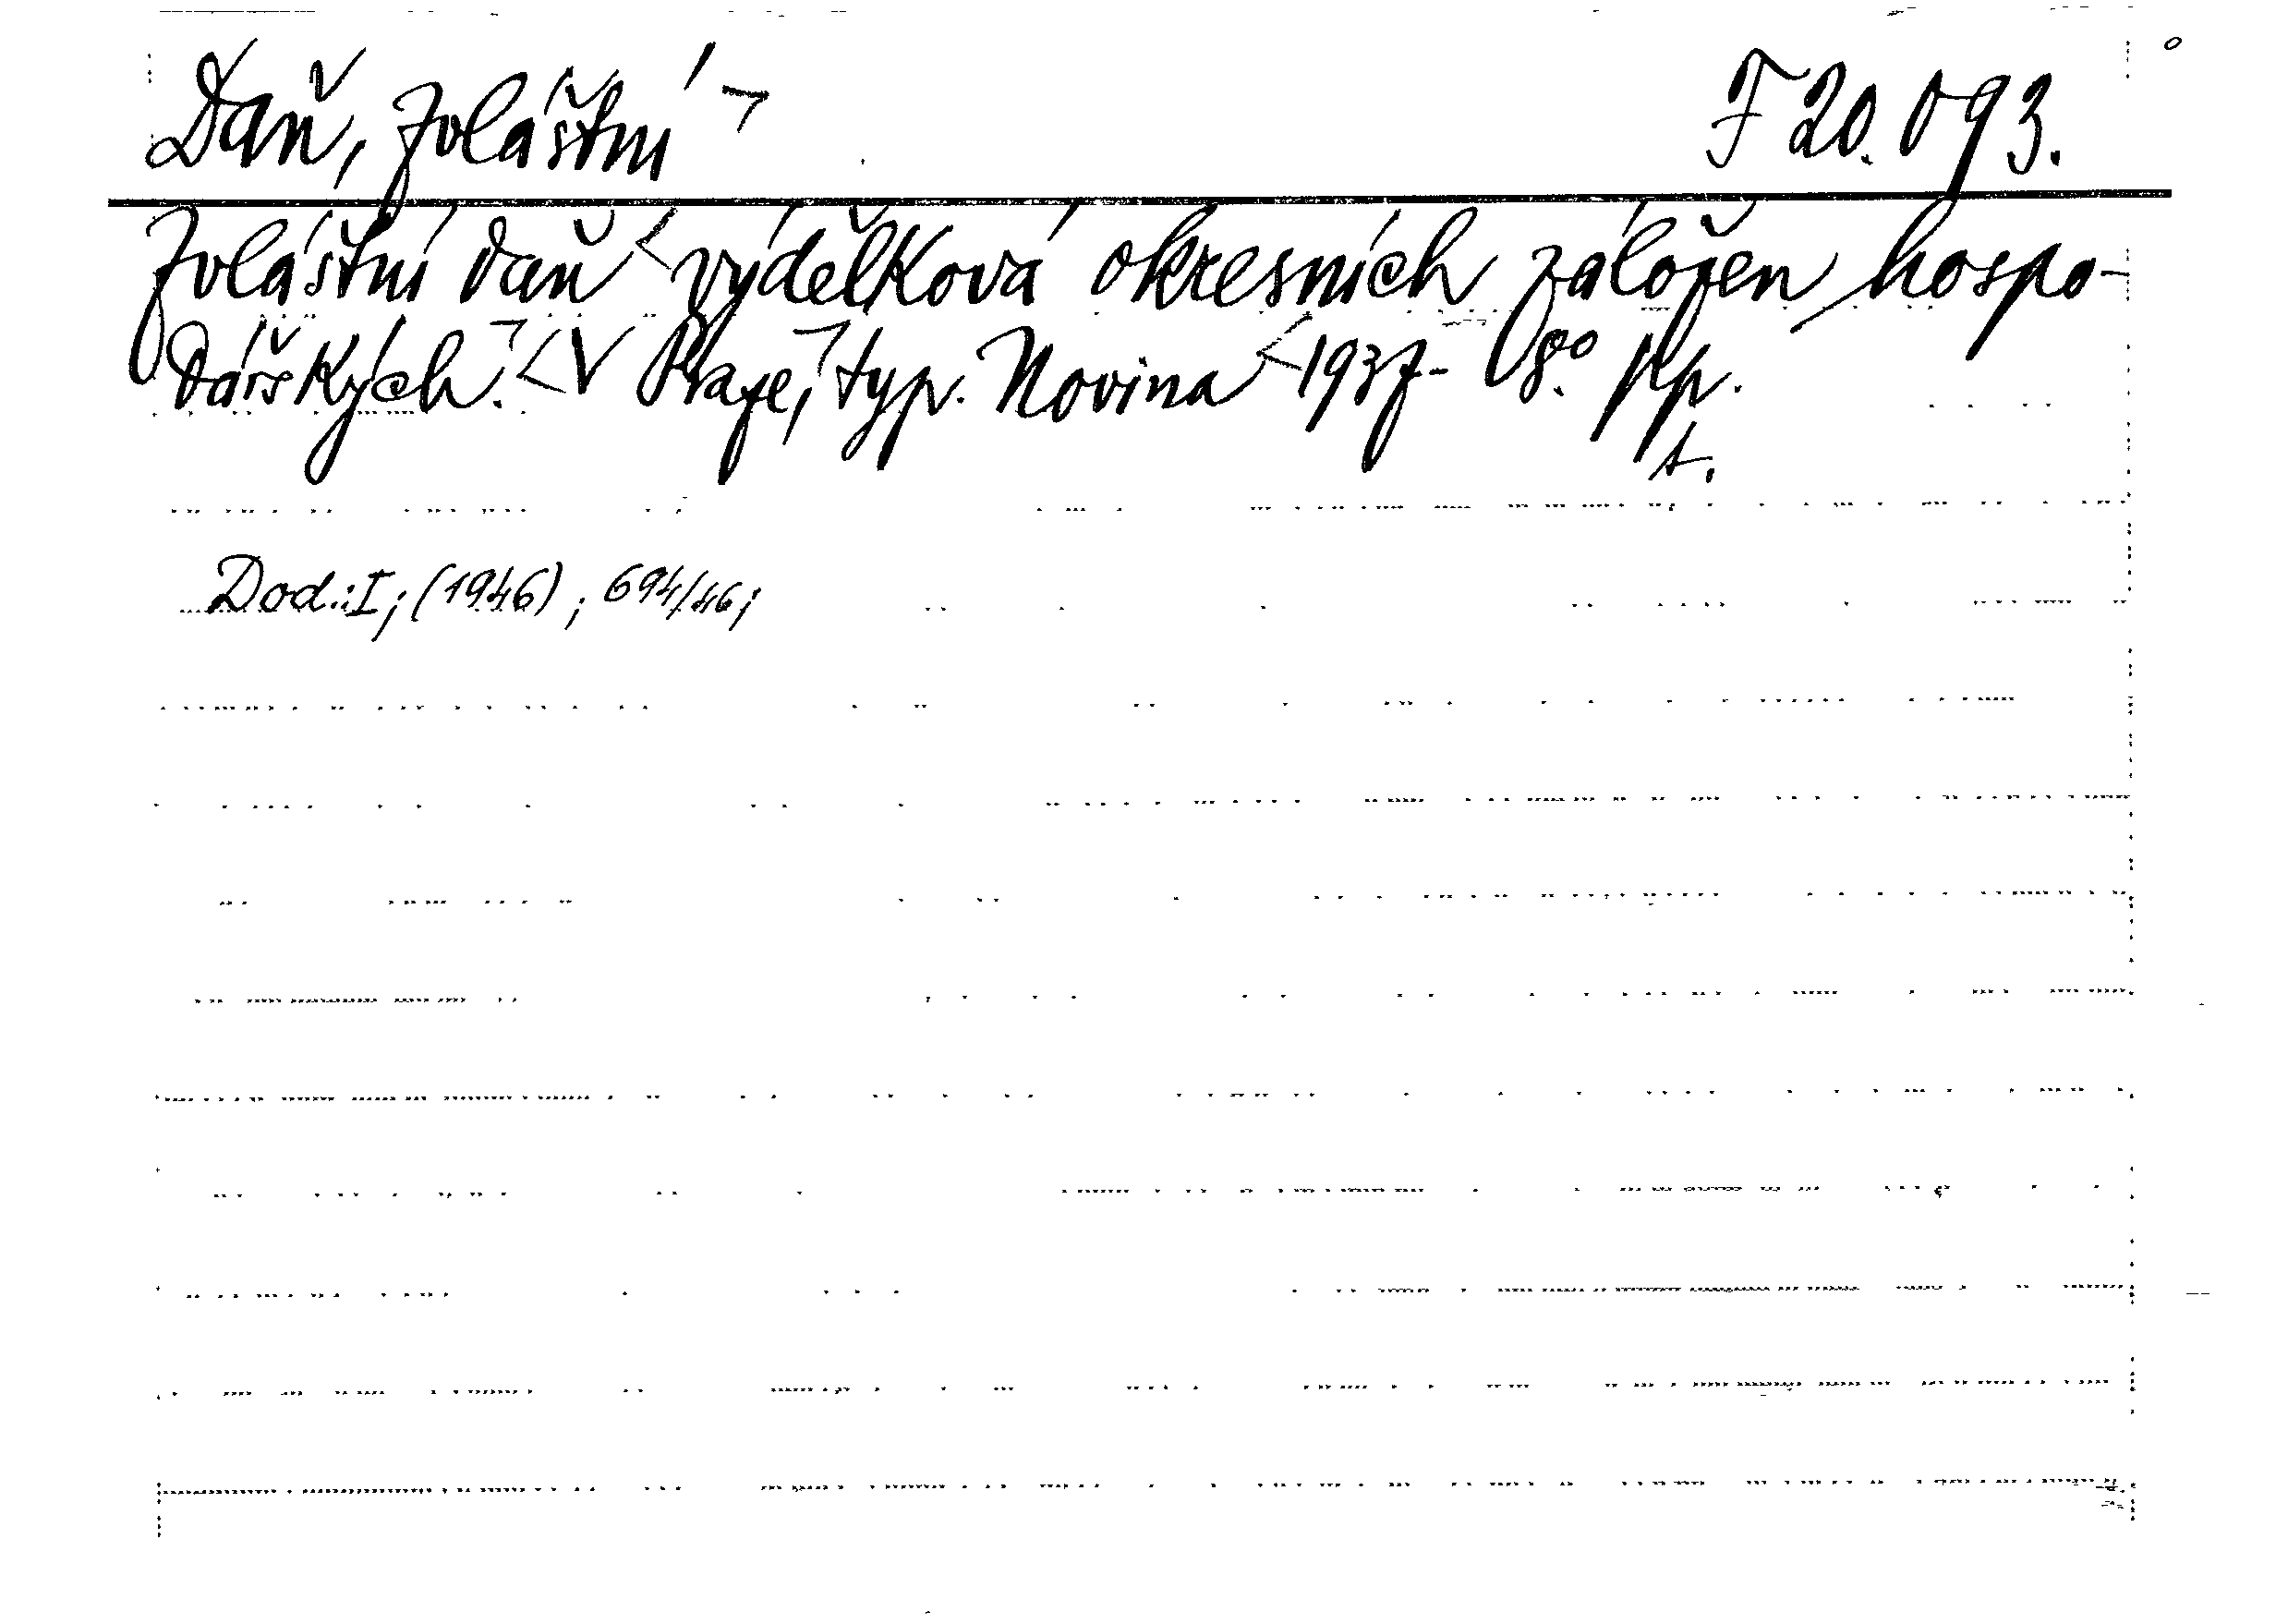 Daň, zvláštní ¬ F 20.093.
Zvláštní daň výdělková okresních záložen hospo-
dářských. V Praze, typ. Novina 1937- 8° pp.
t.
Dod.: I; (1946); 694/46;